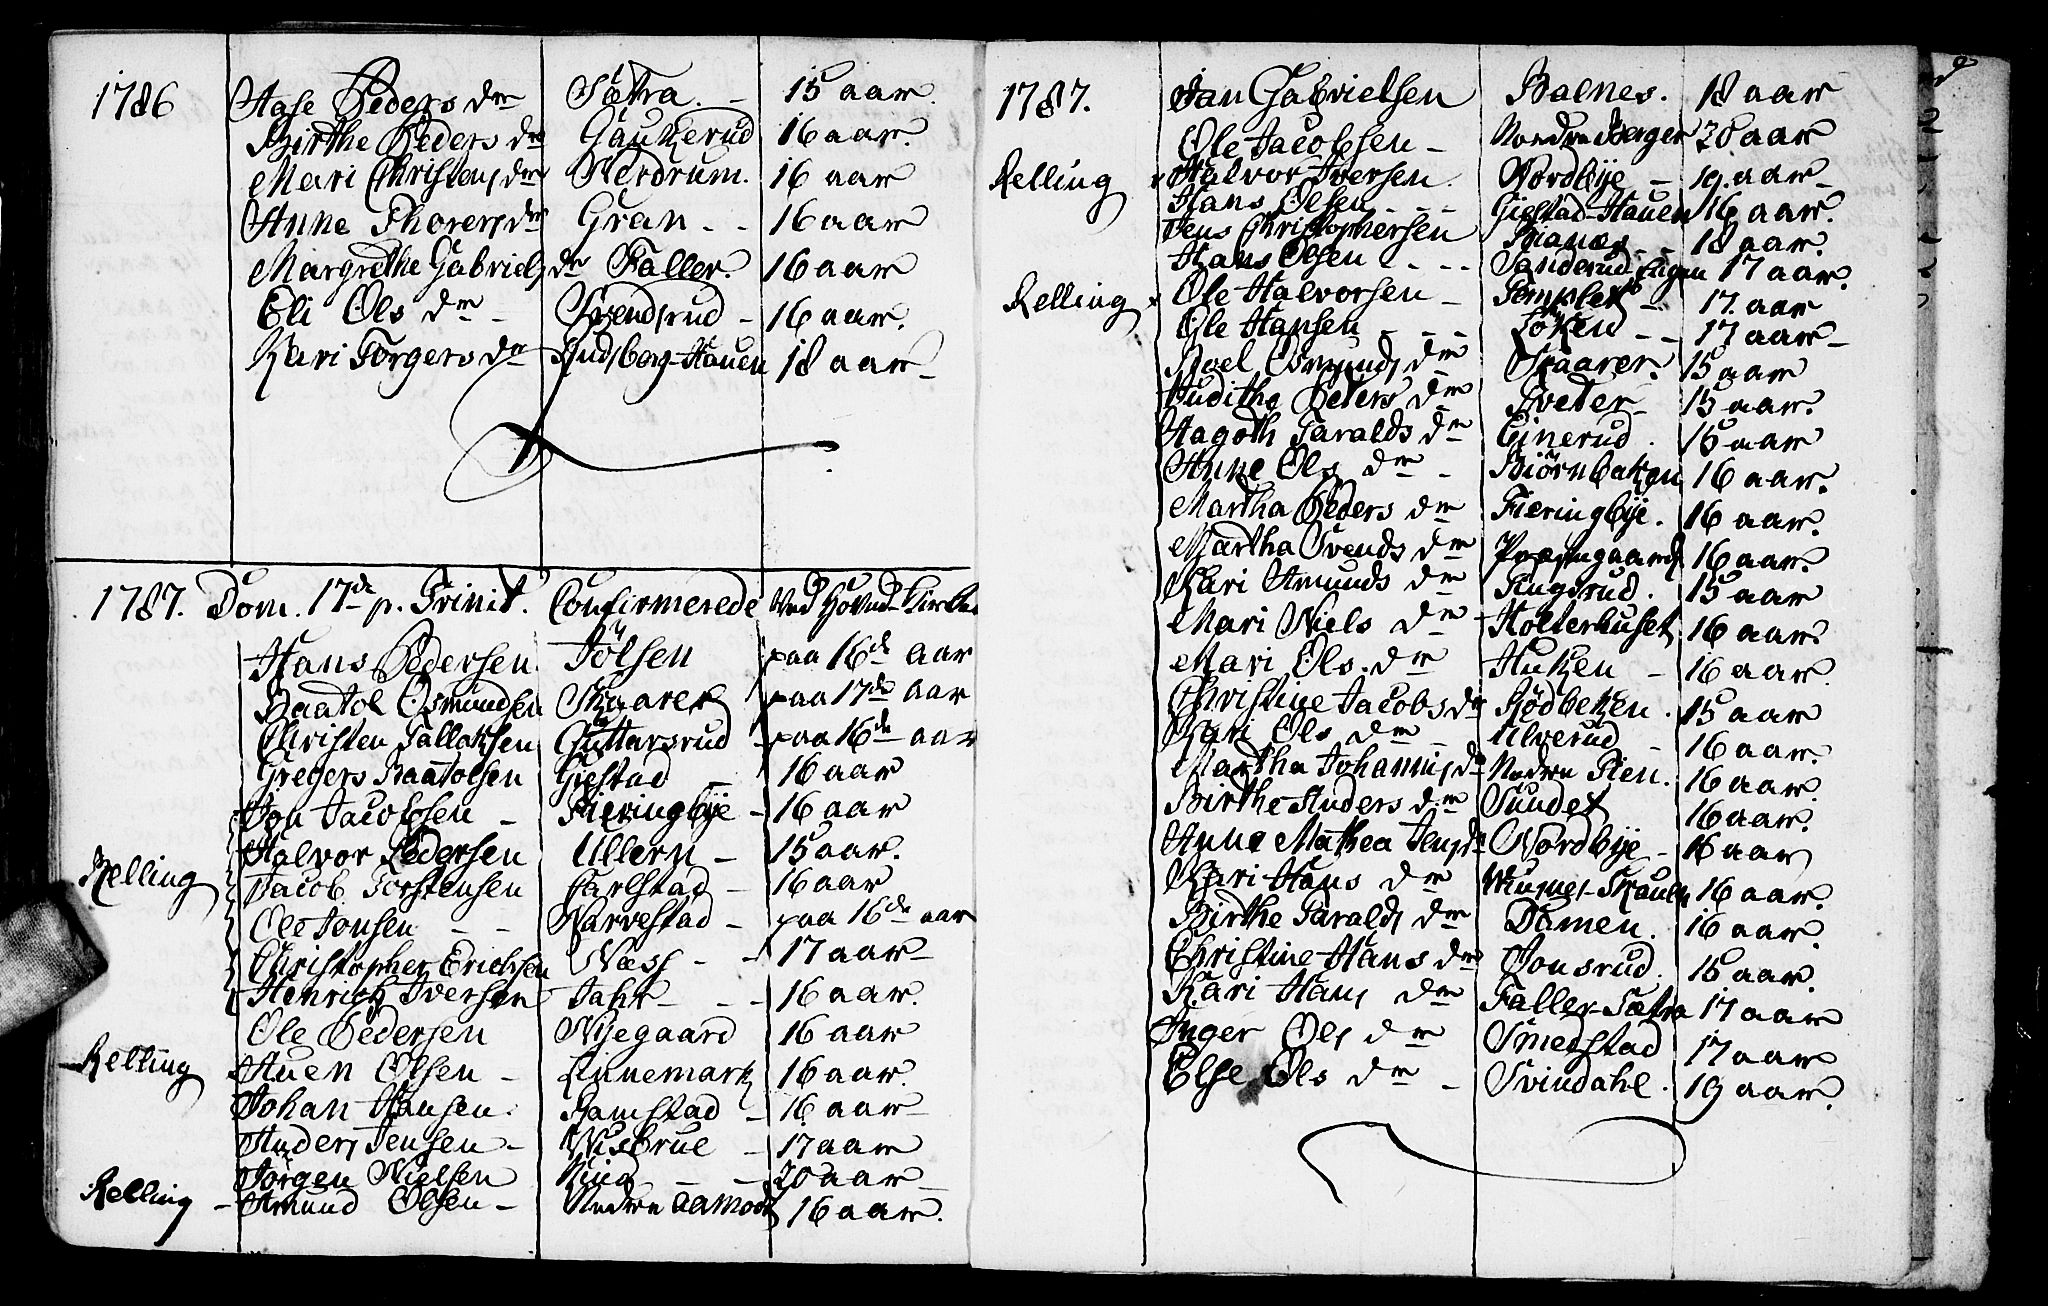 1786 Aase Peders dr Sætra. - 15 aar.
Birthe Peders dr Gaukerud 16 aar.
Mari Christens dr Nerdrum. 16 aar
Anne Thorers dr Gran - - 16 aar
Margrethe Gabriels dr Faller. 16 aar
Eli Ols dr - Svendsrud - 16 aar.
Kari Torgers dr Hudsberg-Hauen 18 aar -
1787. Dom. 17de p. Trinit. Confirmerede ved Hoved-Kirken
Hans Pedersen Jölsen paa 16de aar
Baatol Osmundsen Skaarer paa 17de aar
Christen Tallaksen Guttarsrud paa 16de aar
Gregers Baatolsen Gistad - 16 aar
Jon Jacobsen - Fieringbye - 16 aar
Halvor Pedersen Ullern - 15 aar.
Relling Jacob Torstensen Carlstad - 16 aar
Ole Jonsen - - Narvestad - paa 16de aar
Christopher Erichsen Næss - - 17 aar -
Henrich Iversen Jahr - - 16 aar.
Ole Pedersen Nyegaard 16 aar
Relling Auen Olsen - Finnemark 16 aar.
Johan Hansen. Ramstad - 16 aar -
Anders Jensen - Nusbrue - 17 aar
Jörgen Nielsen - - 20 aar -
Relling - Amund Olsen - Nedre Aamodt 16 aar.
1787. Jan Gabrielsen Balnes. 18 aar
Ole Jacobsen - Nordre Berger 20 aar
Relling x Halvor Iversen. Nordbye - 19. aar -
Hans Olsen - - - Gistad-Hauen 16 aar.
Jens Christophersen Bianes - - 18 aar.
Hans Olsen - - - Sanderud-Engen 17 aar.
Relling x Ole Halvorsen - Tomplet - 17. aar
Ole Hansen - - - Löken - - 17 aar -
Roel Osmunds dr Skaarer. 15 aar
Juditha Peters dr Tveter - 15 aar.
Aagoth Taralds dr Einerud. 15 aar
Anne Ols dr - Biörnbakken 16 aar.
Martha Peders dr Fieringbye. 16 aar.
Martha Svends dr Præstgaard 16 aar.
Kari Amunds dr Tingsrud. 15 aar
Mari Niels dr Holterhuset 16 aar.
Mari Ols. dr Huken - 16 aar.
Christine Jacobs dr Rödbekken. 15 aar
Kari Ols dr - Ulverud - 16 aar.
Martha Johannis dr Nedre Tien. 16 aar.
Birthe Anders dr Sundet 16 aar.
Anne Mathea Jens dr Nordbye - 16 aar
Kari Hans dr 16 aar.
Birthe Taralds dr Damen. 16 aar.
Christine Hans dr Jonsrud. 15 aar.
Kari Hans dr Faller-Sætra 17 aar
Inger Ols dr Smedstad 17 aar
Else Ols dr - Svindahl. 19 aar.